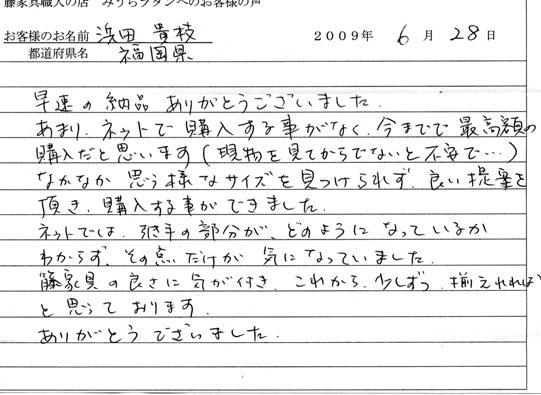 藤家具職人の店 みうらラタンへのお客様の声
お客様のお名前 浜田 貴枝 2009年 6月 28日
都道府県名 福岡県
早速の納品 ありがとうございました.
あまり、ネットで購入する事がなく、今までで最高額の
購入だと思います(現物を見てからでないと不安で…)
なかなか思う様なサイズを見つけられず、良い提案を
頂き、購入する事ができました.
ネットでは、引き手の部分が、どのようになっているか
わからず、その点だけが気になっていました.
籐家具の良さに気が付き、これから、少しずつ、揃えれれば
と思っております.
ありがとうございました.